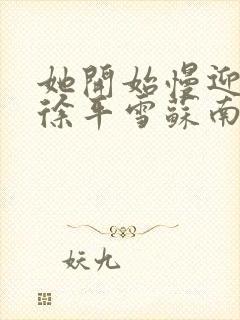 她開始慢迎
徐平雪蘇南
妖九